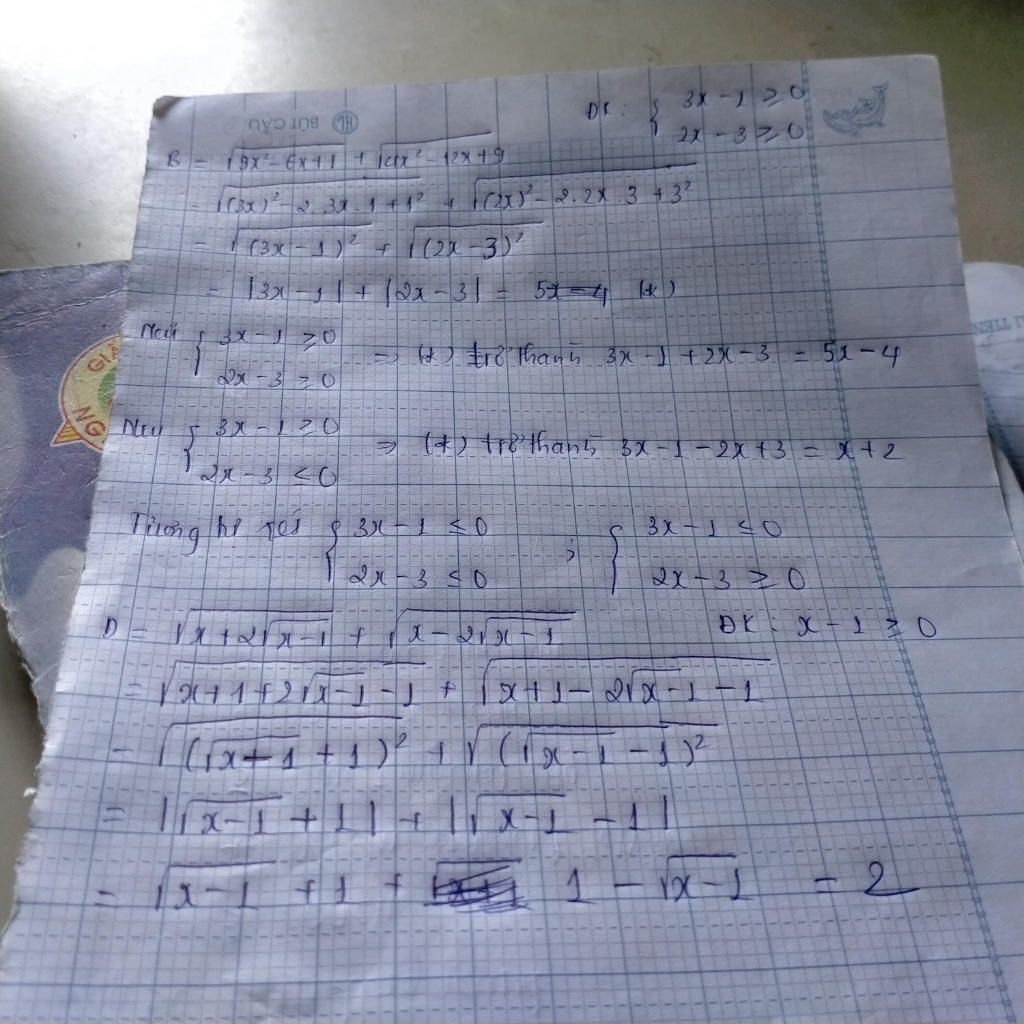 ĐK: { 3x - 1 ≥ 0
2x - 3 ≥ 0
HL BÚT CÂU
B = √(9x² - 6x + 1) + √(4x² - 12x + 9)
= √((3x)² - 2.3x.1 + 1²) + √((2x)² - 2.2x.3 + 3²)
= √((3x - 1)²) + √((2x - 3)²)
= |3x - 1| + |2x - 3| = 5x - 4 (*)
Nếu { 3x - 1 ≥ 0
2x - 3 ≥ 0 => (*) trở thành 3x - 1 + 2x - 3 = 5x - 4
Nếu { 3x - 1 ≥ 0
2x - 3 ≤ 0 => (*) trở thành 3x - 1 - 2x + 3 = x + 2
Tương tự với { 3x - 1 ≤ 0 ; { 3x - 1 ≤ 0
2x - 3 ≤ 0 2x - 3 ≥ 0
D = √(x + 2√(x - 1)) + √(x - 2√(x - 1)) ĐK: x - 1 ≥ 0
= √(x + 1 + 2√(x - 1) - 1) + √(x + 1 - 2√(x - 1) - 1)
= √((√(x - 1) + 1)²) + √((√(x - 1) - 1)²)
= |√(x - 1) + 1| + |√(x - 1) - 1|
= √(x - 1) + 1 + 1 - √(x - 1) = 2